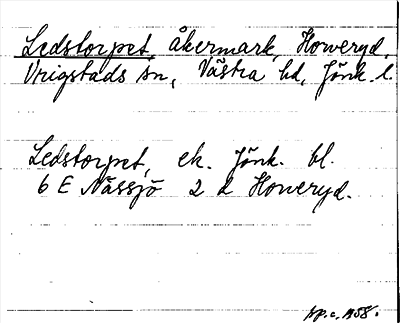 Ledstorpet, åkermark, Howeryd,
Vrigstads sn, Västra hd, Jönk. l.
Ledstorpet, ek. Jönk. bl.
6 E Nässjö 2 d Howeryd.
pp.c. 1958.